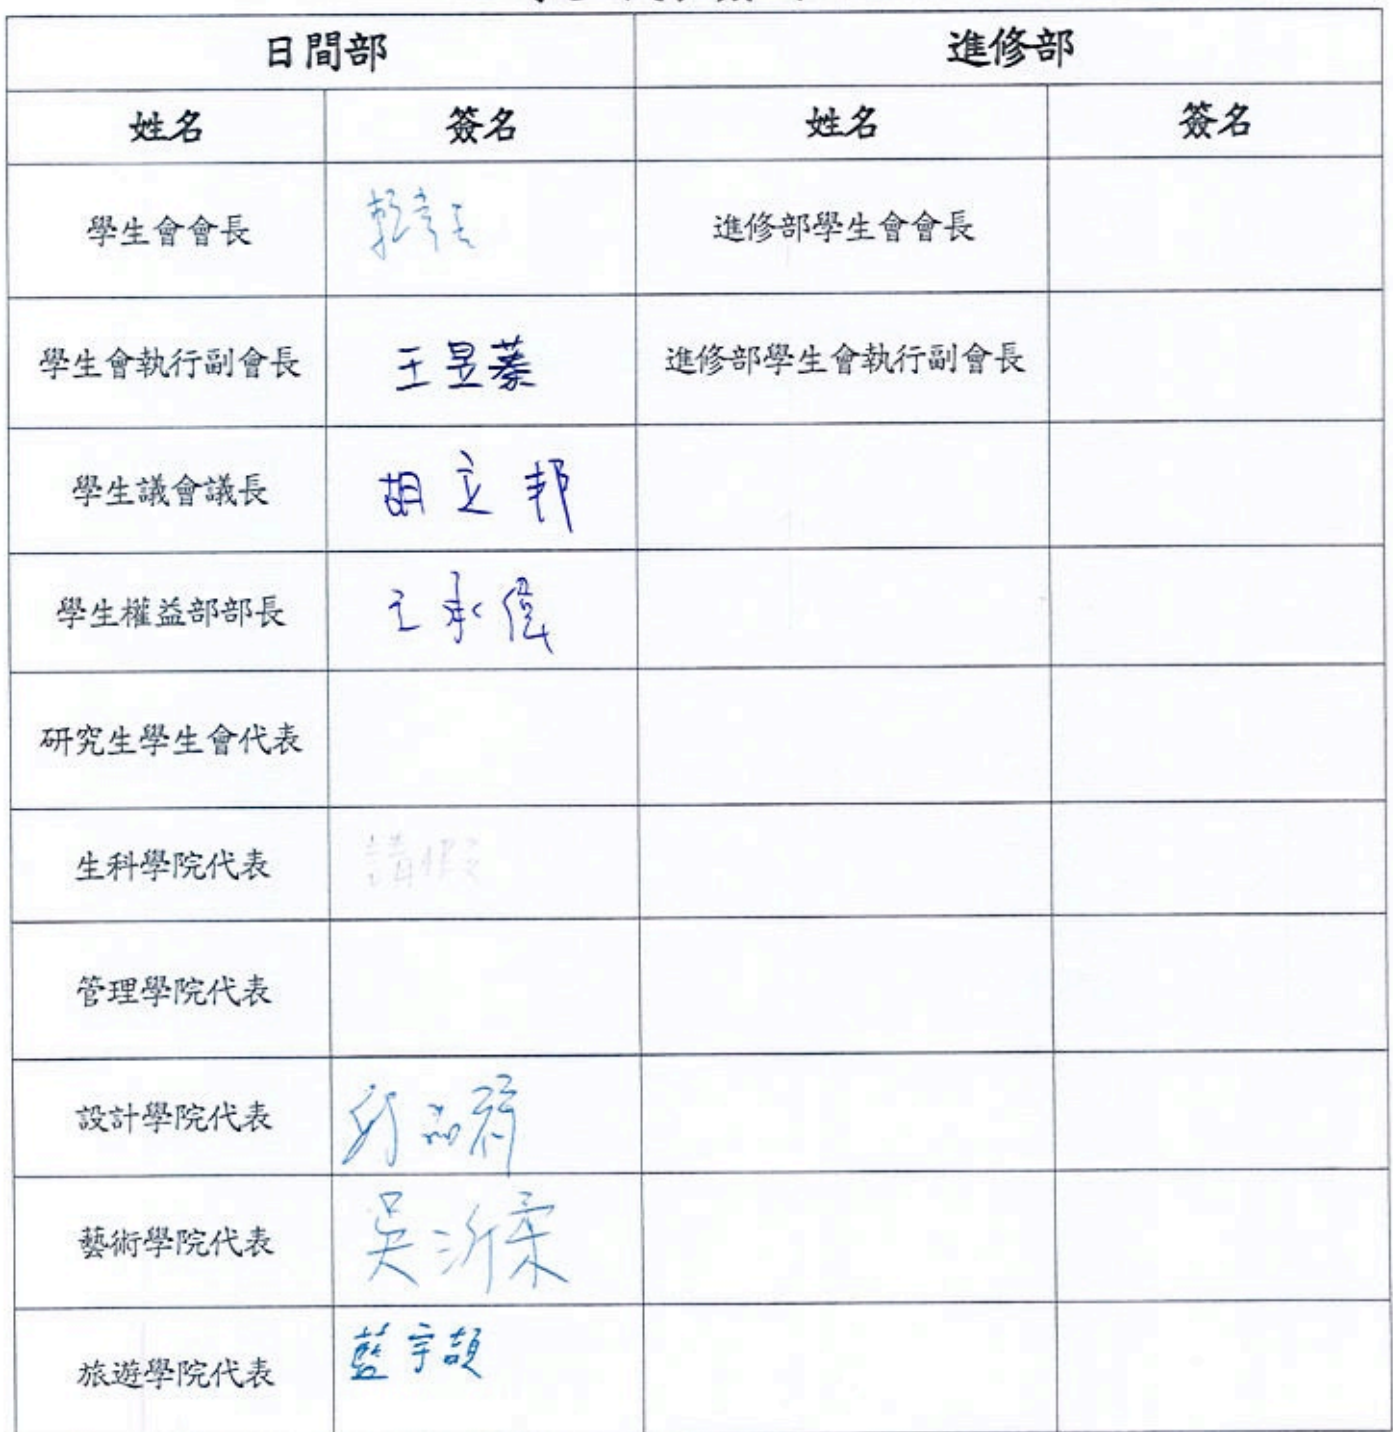 日間部 進修部
姓名 簽名 姓名 簽名
學生會會長 進修部學生會會長
學生會執行副會長 王昱蓁 進修部學生會執行副會長
學生議會議長 胡立邦
學生權益部部長 王承偉
研究生學生會代表
生科學院代表 請假
管理學院代表
設計學院代表
藝術學院代表 吳沂柔
旅遊學院代表 藍宇頡